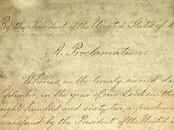 By the President of the United States of
A Proclamation.
Whereas, on the twenty-second day
September, in the year of our Lord one
eight hundred and sixty two, a
issued by the President of the United